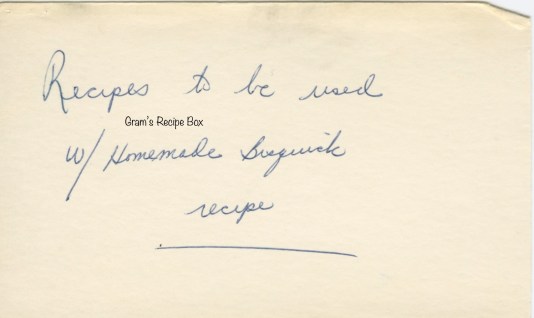 Recipes to be used
Gram's Recipe Box
w/ Homemade Bisquick
recipe